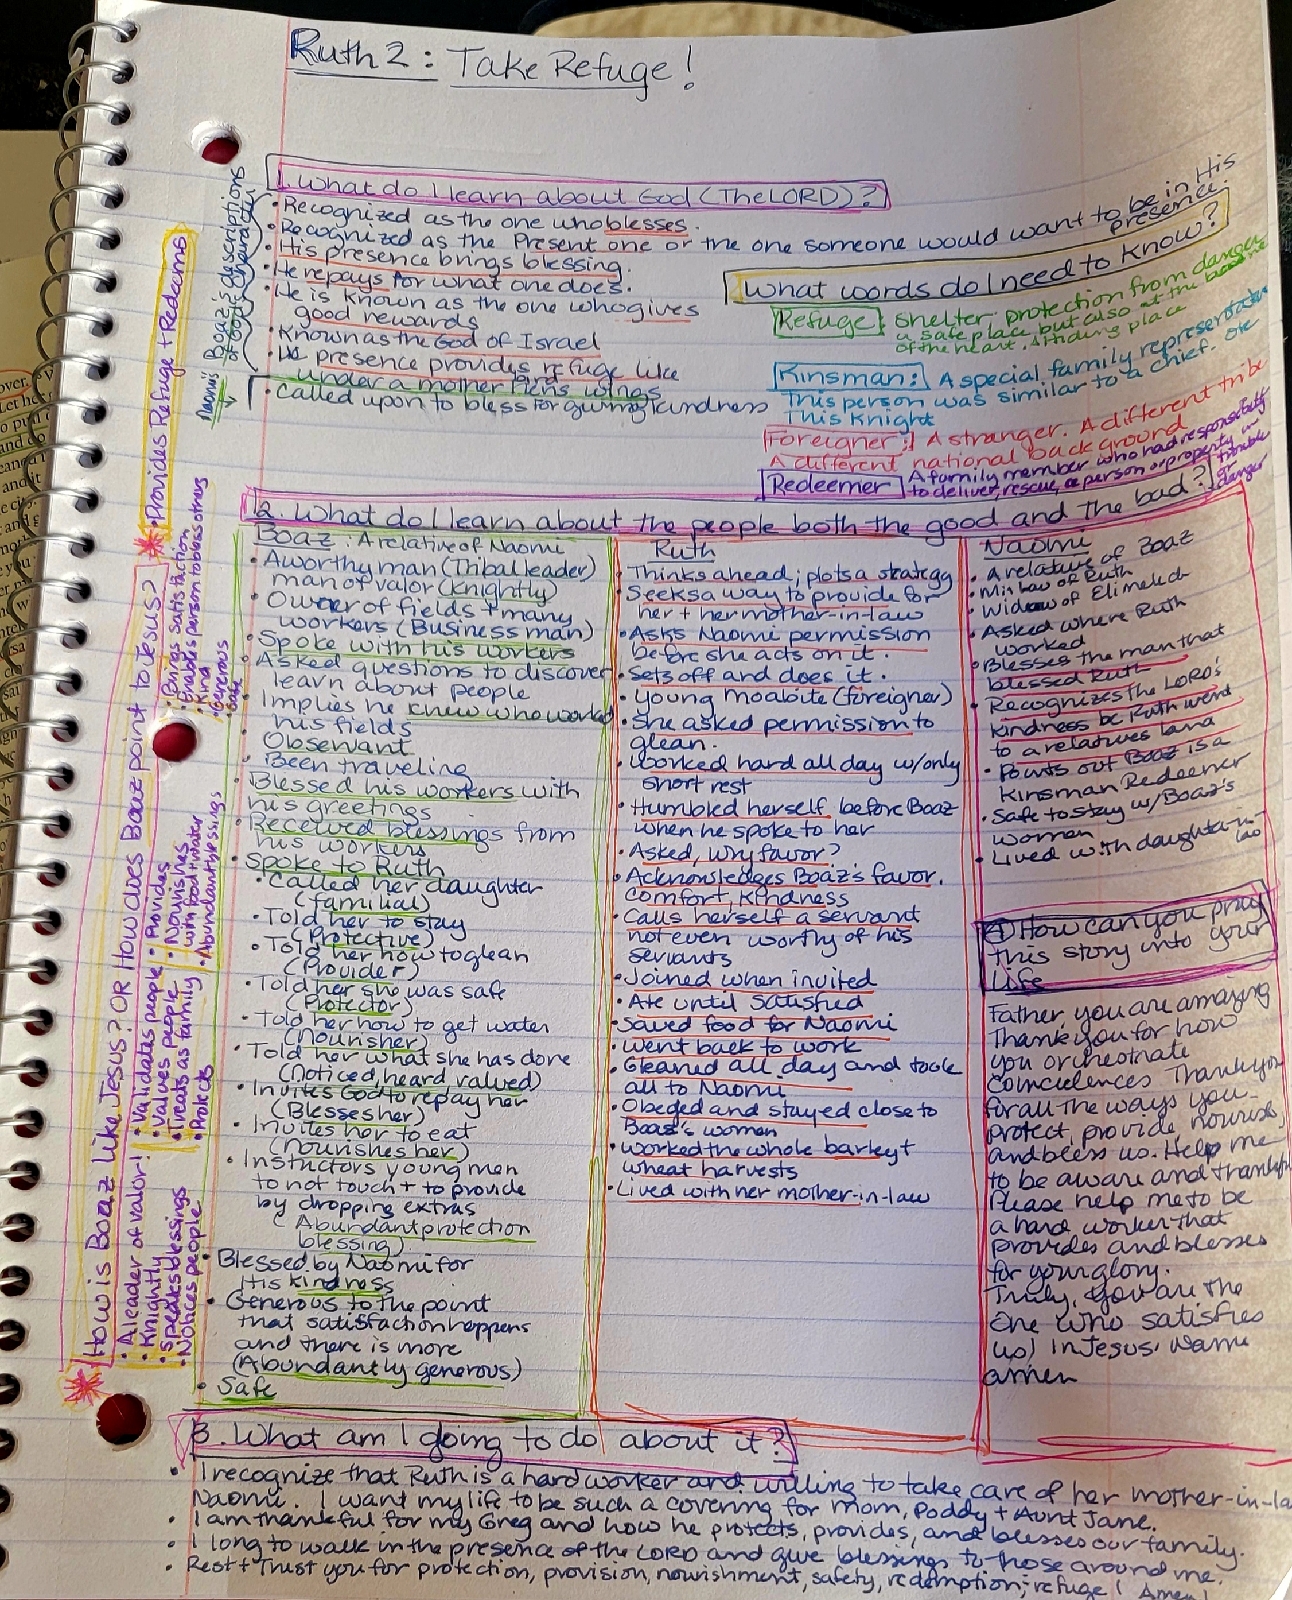 Ruth 2: Take Refuge!
1. What do I learn about God (The LORD)?
• Recognized as the one who blesses.
• Recognized as the Present one or the one someone would want to be in His
presence.
• His presence brings blessing.
• He repays for what one does.
• He is known as the one who gives
good rewards
• Known as the God of Israel
• presence provides refuge like
under a mother hens wings
• Called upon to bless for giving kindness
Boaz's descriptions
of God's character
Naomi's
What words do I need to know?
Refuge: shelter protection from danger
a safe place but also at the
of the heart. A hiding place
Kinsman: A special family representative
This person was similar to a chief. or
This Knight
Foreigner: A stranger. A different tribe
A different national background
Redeemer A family member who had responsibility
to deliver, rescue, a person or property in
trouble
or
danger
2. What do I learn about the people both the good and the bad?
Boaz: A relative of Naomi
• A worthy man (Tribal leader)
man of valor (knightly)
• Owner of fields + many
workers (Business man)
• Spoke with his workers
• Asked questions to discover
learn about people
• Implies he knew who worked
his fields
• Observant
• Been traveling
• Blessed his workers with
his greetings
• Received blessings from
his workers
• Spoke to Ruth
• Called her daughter
(familial)
• Told her to stay
(Protective)
• Told her how to glean
(Provider)
• Told her she was safe
(Protector)
• Told her how to get water
(Nourisher)
• Told her what she has done
(noticed, heard, valued)
• Invites God to repay her
(Blesses her)
• Invites her to eat
(nourishes her)
• Instructors young men
to not touch + to provide
by dropping extras
(Abundant protection
blessing)
• Blessed by Naomi for
His kindness
• Generous to the point
that satisfaction happens
and there is more
(Abundantly generous)
• Safe
Ruth
• Thinks ahead; plots a strategy
• Seeks a way to provide for
her + her mother-in-law
• Asks Naomi permission
before she acts on it.
• Sets off and does it.
• Young moabite (foreigner)
• She asked permission to
glean.
• Worked hard all day w/only
short rest
• Humbled herself before Boaz
when he spoke to her
• Asked, Why favor?
• Acknowledges Boaz's favor,
comfort, Kindness
• Calls herself a servant
not even worthy of his
servants
• Joined when invited
• Ate until satisfied
• Saved food for Naomi
• Went back to work
• Gleaned all day and took
all to Naomi
• Obeyed and stayed close to
Boaz's women
• Worked the whole barley +
wheat harvests
• Lived with her mother-in-law
Naomi
• A relative of Boaz
• Mis law of Ruth
• Widow of Elimelech
• Asked where Ruth
worked
• Blesses the man that
blessed Ruth
• Recognizes the LORD's
kindness bc Ruth went
to a relatives land
• Points out Boaz is a
Kinsman Redeemer
• Safe to stay w/Boaz's
women
• Lived with daughter-in-
law
4 How can you pray
this story into your
Life
Father you are amazing
Thank you for how
you orchestrate
coincidences Thank you
for all the ways you
protect, provide nourish,
and bless us. Help me
to be aware and thankful
Please help me to be
a hard worker that
provides and blesses
for your glory.
Truly, you are the
one who satisfies
(us) In Jesus' name
amen
How is Boaz Like Jesus? OR How does Boaz point to Jesus?
• Provides Refuge + Redeems
• A leader of valor!
• Knightly
• Speaks blessings
• Notices people
• Validates people
• Values people
• Treats as family
• Protects
• Provides
• Nourishes
with food + water
• Abundant blessings
• Brings satisfaction
• Enables person to bless others
• Kind
• Generous
• Safe
3. What am I going to do about it?
• I recognize that Ruth is a hard worker and willing to take care of her mother-in-la
Naomi. I want my life to be such a covering for mom, Poddy + Aunt Jane.
• I am thankful for my Greg and how he protects, provides, and blesses our family.
• I long to walk in the presence of the LORD and give blessings to those around me.
• Rest + Trust you for protection, provision, nourishment, safety, redemption; refuge! Amen!